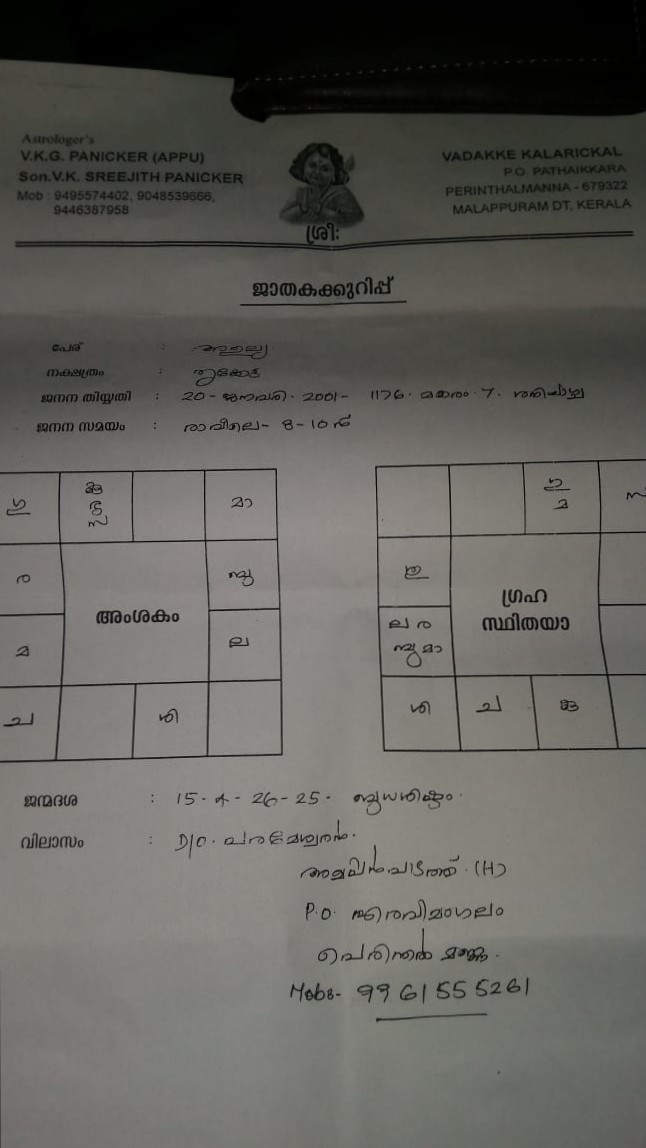 Astrologer's
V.K.G. PANICKER (APPU)
Son.V.K. SREEJITH PANICKER
Mob : 9495574402, 9048539666,
9446387958
VADAKKE KALARICKAL
P.O. PATHAIKKARA
PERINTHALMANNA - 679322
MALAPPURAM DT. KERALA
ശ്രീഃ
ജാതകക്കുറിപ്പ്
പേര് :
നക്ഷത്രം : തൃക്കേട്ട
ജനന തിയ്യതി : 20 - ജനുവരി - 2001 - 1176 - മകരം - 7 - ശനിയാഴ്ച
ജനന സമയം : രാവിലെ - 8 - 10 ന്
മാ
ര
അംശകം
മ
ല
ച
ശി
മ
ഗ്രഹ
സ്ഥിതയാ
ല ര
മാ
ശി
ച
ജന്മദശ : 15 - 4 - 26 - 25 - ബുധശിഷ്ടം.
വിലാസം : D/O. പരമേശ്വരൻ.
(H)
P.O. രവിമംഗലം
പെരിന്തൽമണ്ണ.
Mob:- 9961555261